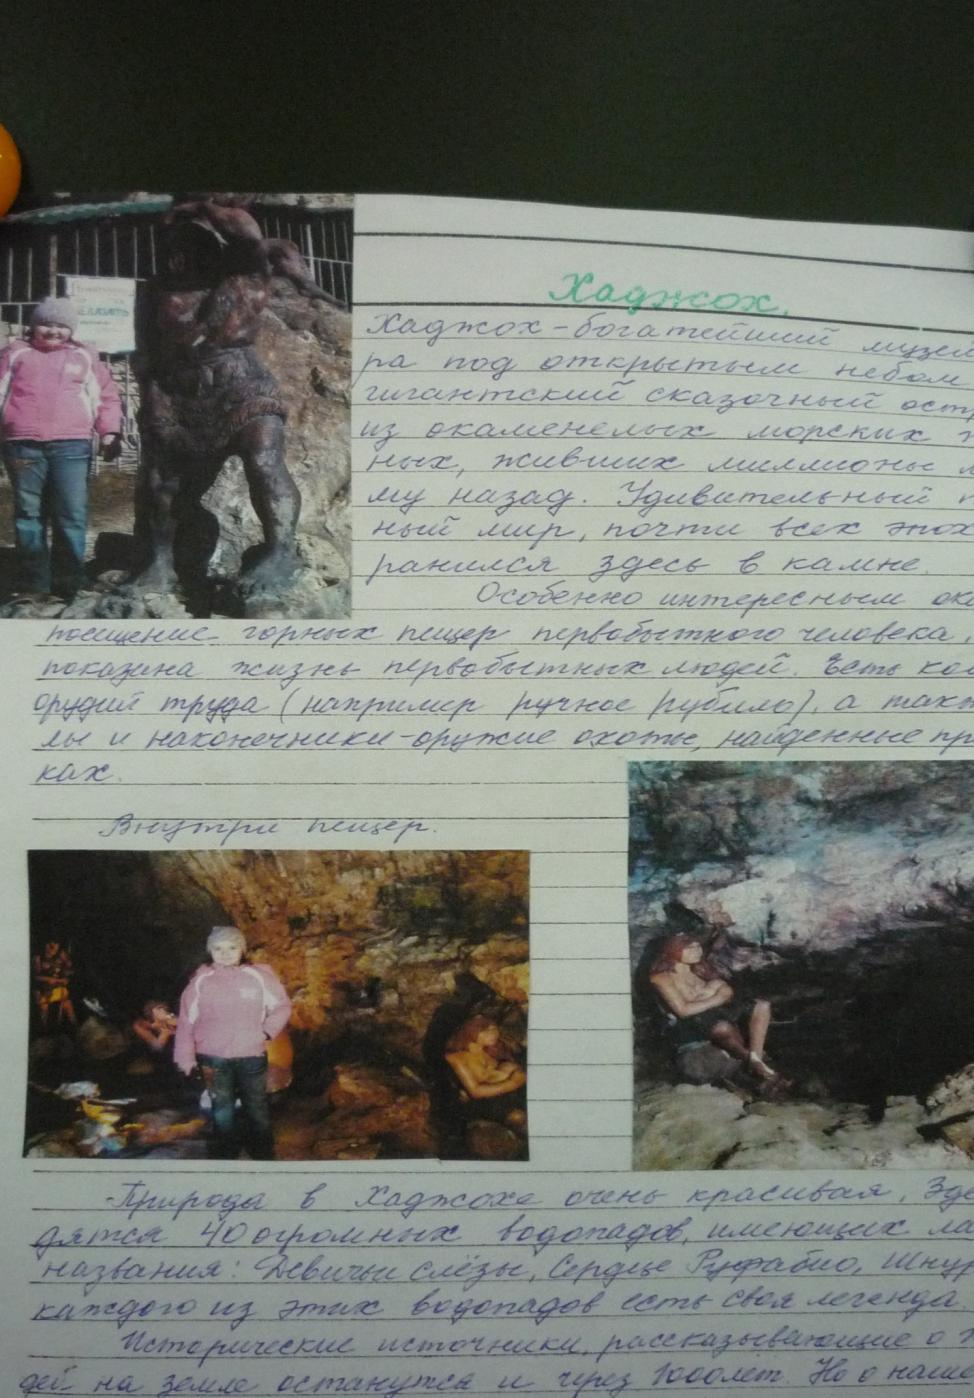 Хаджох.
Хаджох - богатейший музей
ра под открытым небом
гигантский сказочный ост
из окаменелых морских
ных, живших миллионы л
му назад. Удивительный п
ный мир, почти всех эпох
ранился здесь в камне.
Особенно интересным ока
посещение горных пещер первобытного человека,
показана жизнь первобытных людей. Есть кол
орудий труда (например ручное рубило), а такж
лы и наконечники - оружие охоты, найденные пр
ках.
Внутри пещер.
Природа в Хаджохе очень красивая. Зде
дятся 40 огромных водопадов, имеющих ла
названия: Девичьи слёзы, Сердце Руфабго, Шнур
каждого из этих водопадов есть своя легенда.
Исторические источники, рассказывающие о ж
дей на земле останутся и через 1000 лет. Но о наше